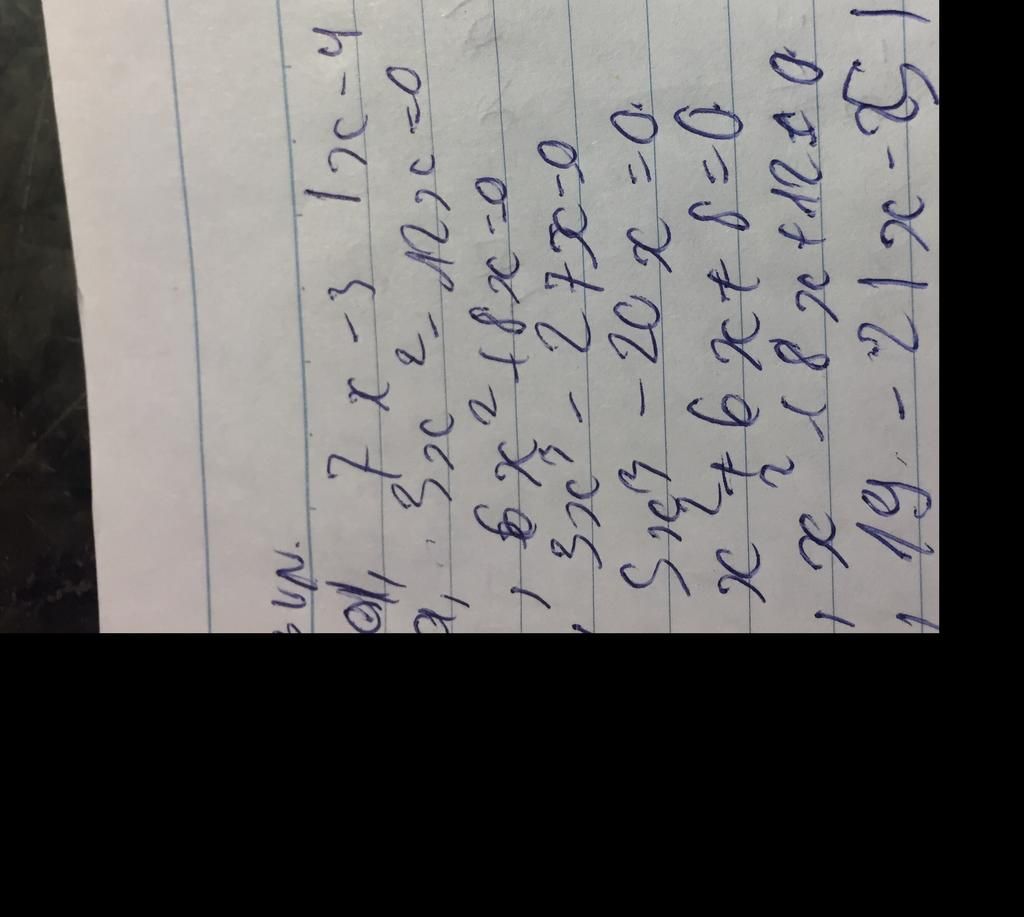 7x - 3 | x - 4
3x² - 12x = 0
, 6x² + 8x = 0
, 3x³ - 27x = 0
5x³ - 20x = 0
x² + 6x + 8 = 0
, x² + 8x + 12 = 0
, 19 - 2 | x - 25 |